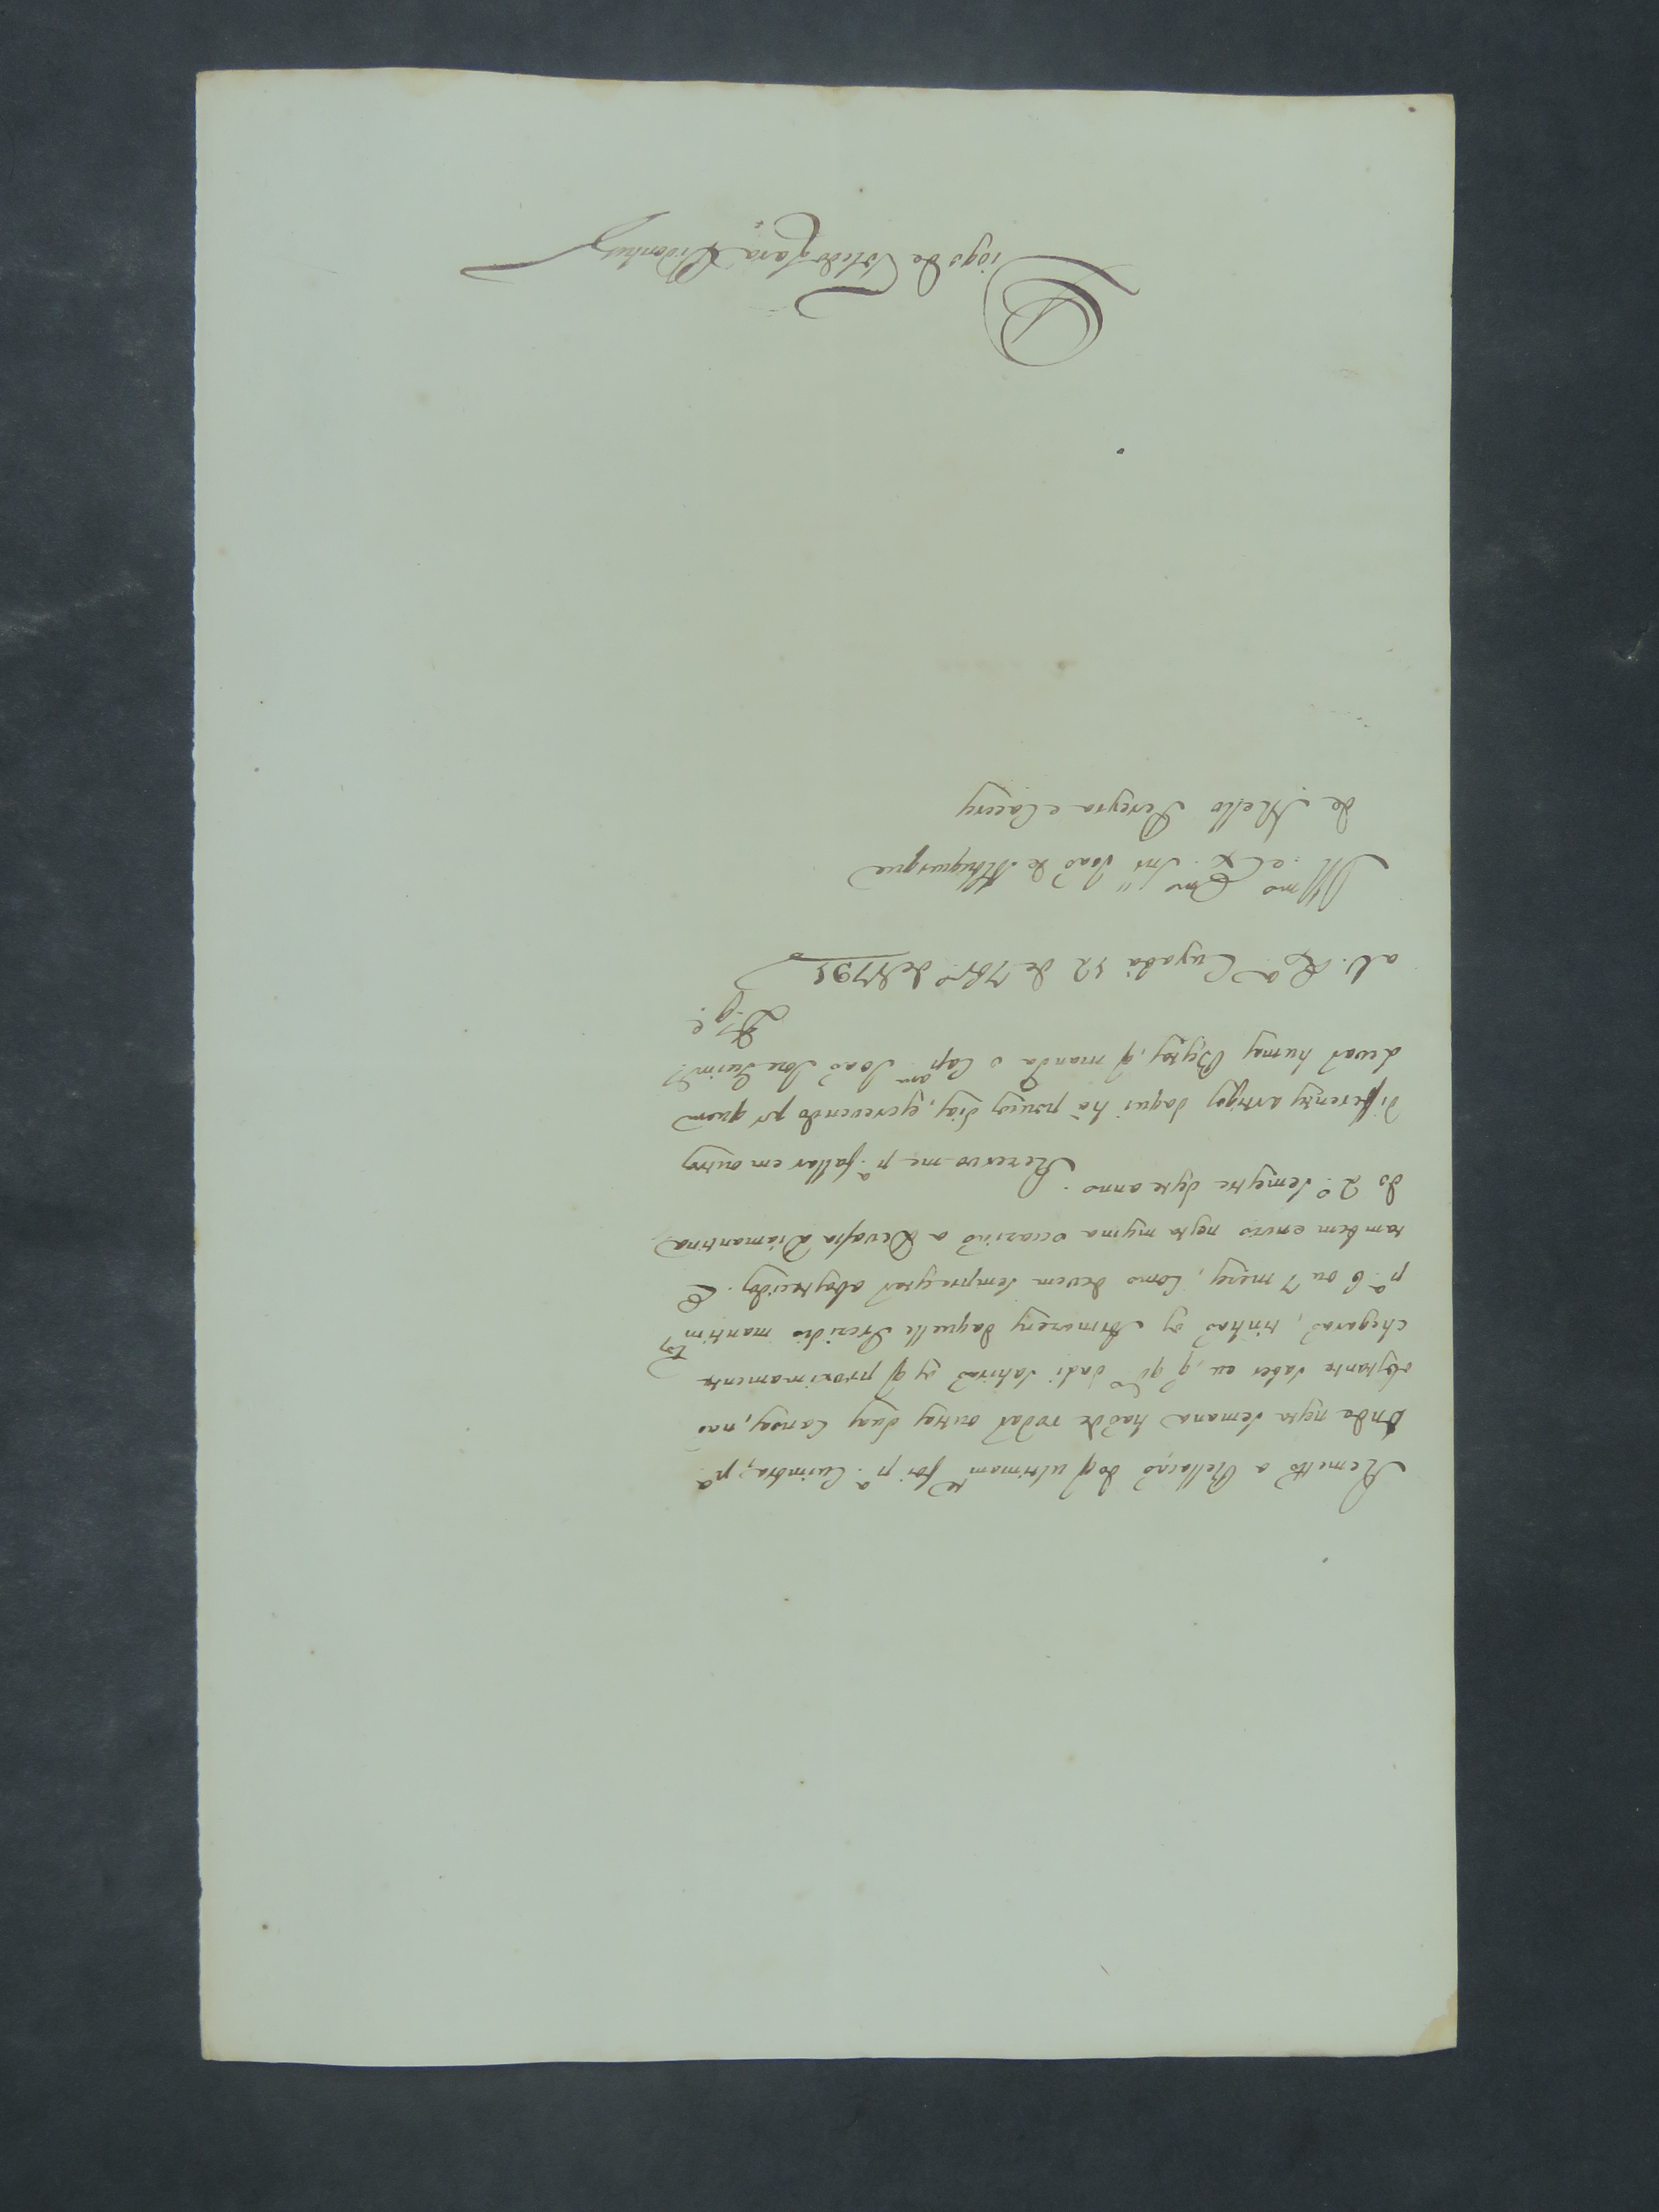 Remetto a Rellação do q̃ ultimam.te foi p.a Coimbra; p.a
onde nesta semana hão de rodar outras duas Canoas, não
obstante saber eu, q̃ q.do dali sahirão os q̃ proximamente
chegarão, tinhão os Armazens daquelle Prezidio mantim.tos
p.a 6 ou 7 mezes, como devem sempre estar abastecidos. E
tambem envio nesta mesma occazião a Devassa Diamantina
do 2.o semestre deste anno.
Rezervo-me p.a fallar em outros
differentes artigos daqui há poucos dias, escrevendo por quem
levar humas Bestas, q̃ manda o Cap.am João Joze Guim.es
D. g.e
a V. Ex.a Cuyabá 12 de 7br.o de 1791
Ill.mo e Ex.mo Snr João de Albuquerque
de Mello Pereyra e Caceres
Diogo de Toledo Lara Ordonhez